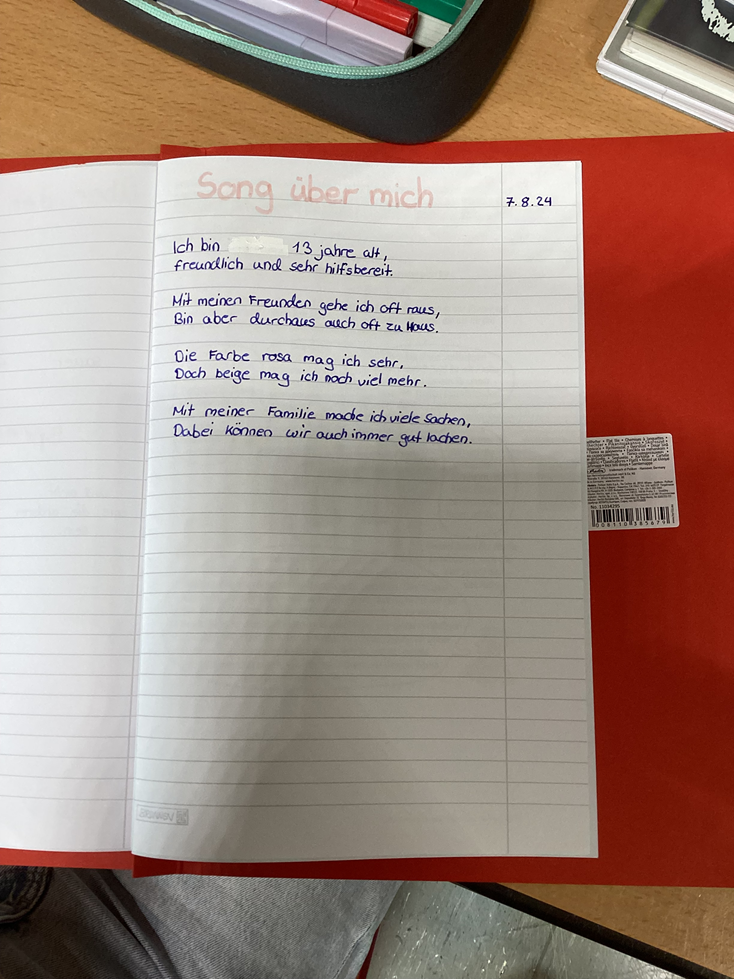 Song über mich
7.8.24
Ich bin 13 jahre alt,
freundlich und sehr hilfsbereit.
Mit meinen Freunden gehe ich oft raus,
Bin aber durchaus auch oft zu Haus.
Die Farbe rosa mag ich sehr,
Doch beige mag ich noch viel mehr.
Mit meiner Familie mache ich viele Sachen,
Dabei können wir auch immer gut lachen.